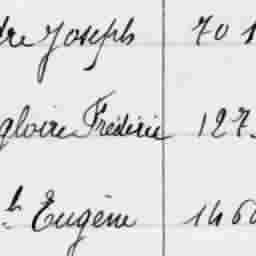 dre Joseph 701
gloire Frédéric 127
h Eugène 146